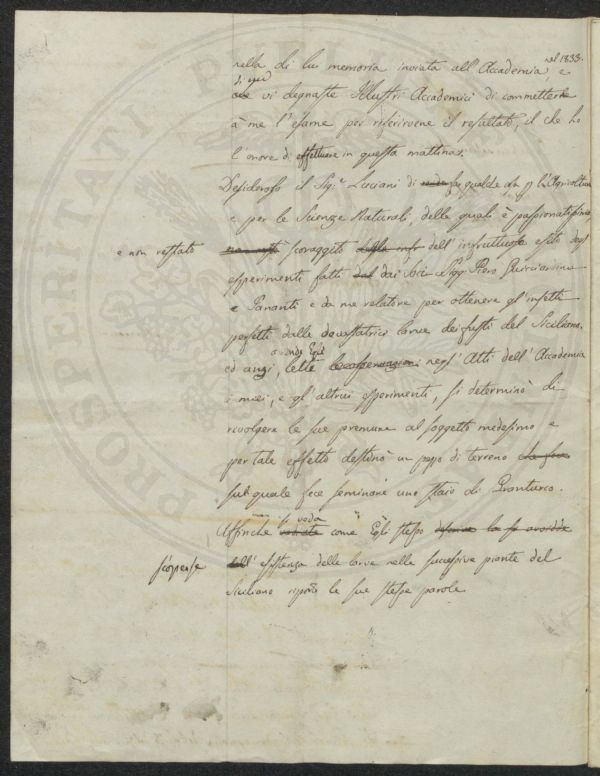 nella di lui memoria inviata all'Accademia nel 1833. e
di cui vi degnaste Illustri Accademici di commettere
à me l'esame per riferirvene il resultato, il che ho
l'onore di effettuare in questa mattina.
Desideroso il Sig.r Luciani di qualche l'Agricoltura
e per le Scienze Naturali, delle quali è passionatissimo
e non restato scoraggito dell'infruttuoso esito degli
esperimenti fatti dai Soci Sigg. Piero
e Pananti e da me relatore per ottenere gl'insetti
perfetti dalle devastatrici larve dei fusti del Siciliano,
ed anzi, avendo Egli letti negl'Atti dell'Accademia
i miei, e gl'altrui esperimenti, si determinò di
rivolgere le sue premure al soggetto medesimo e
per tale effetto destinò un pezzo di terreno
sul quale fece seminare uno staio di Granturco.
Affinchè si veda come Egli stesso
scoprisse l'esistenza delle larve nelle successive piante del
Siciliano riporto le sue stesse parole
PROSPERITATI